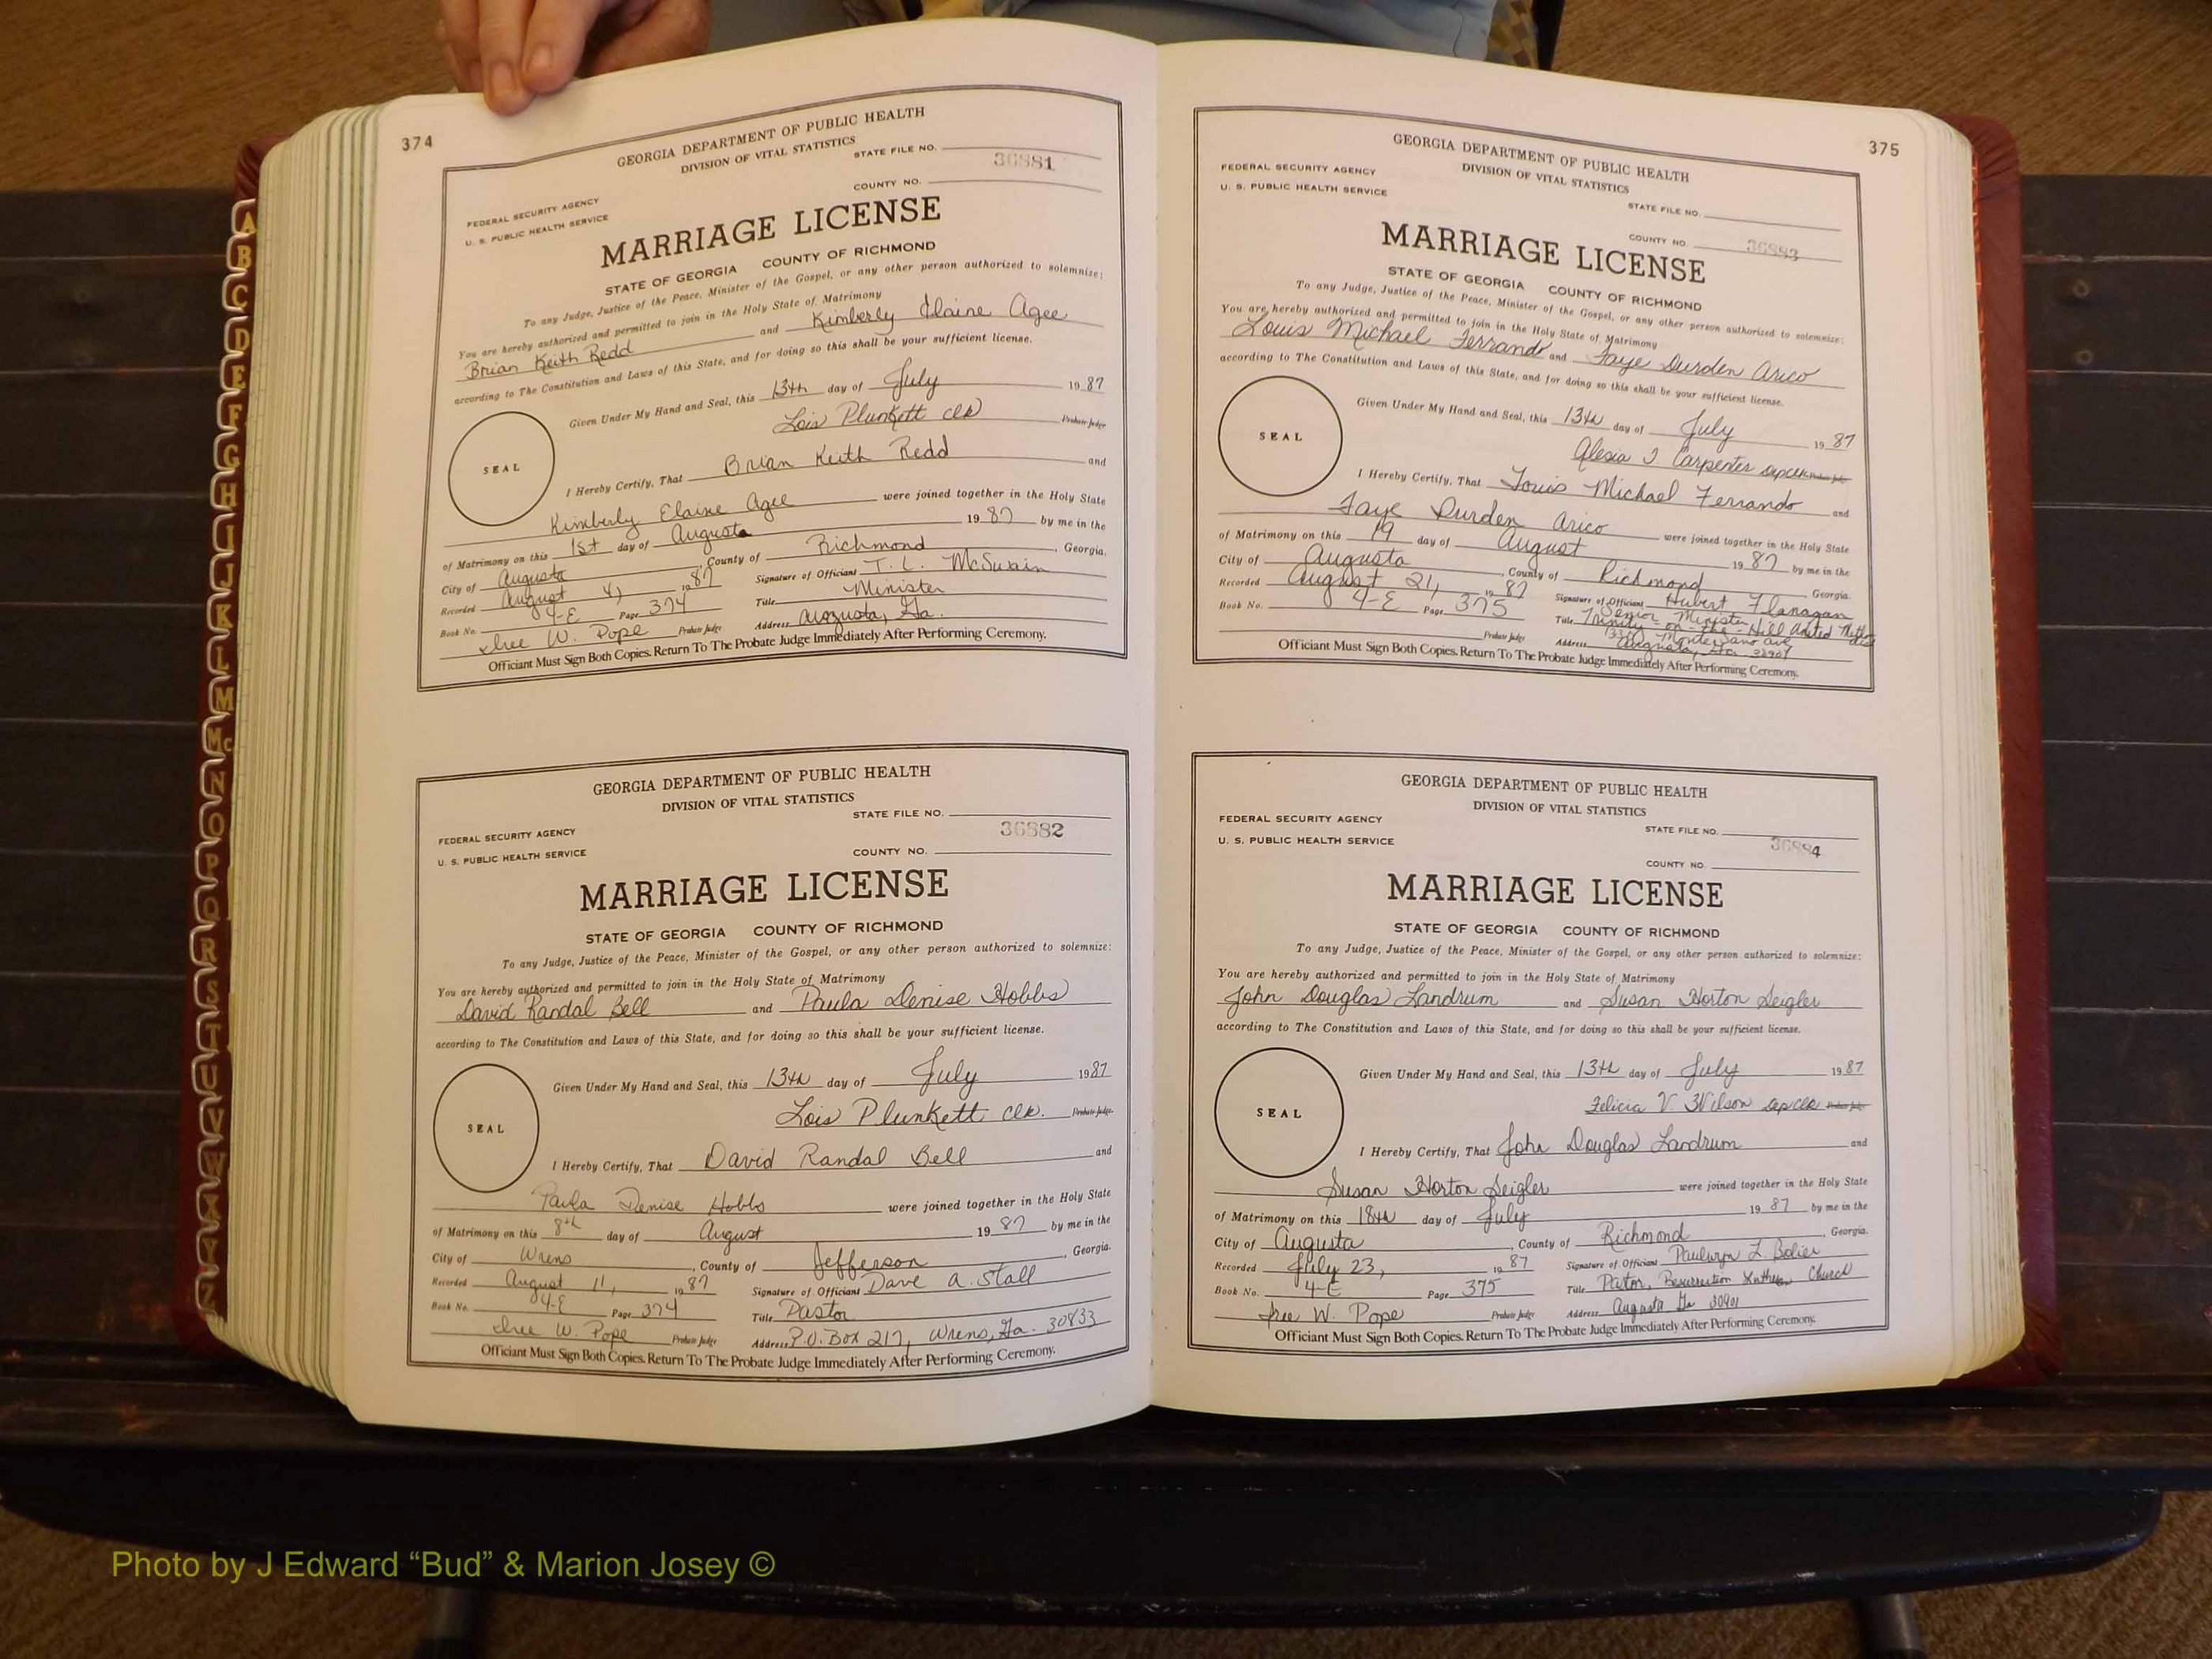 374
GEORGIA DEPARTMENT OF PUBLIC HEALTH
DIVISION OF VITAL STATISTICS
STATE FILE NO. 36881
FEDERAL SECURITY AGENCY
COUNTY NO.
U. S. PUBLIC HEALTH SERVICE
MARRIAGE LICENSE
STATE OF GEORGIA COUNTY OF RICHMOND
To any Judge, Justice of the Peace, Minister of the Gospel, or any other person authorized to solemnize:
You are hereby authorized and permitted to join in the Holy State of Matrimony
Brian Keith Redd and Kimberly Elaine Agee
according to The Constitution and Laws of this State, and for doing so this shall be your sufficient license.
Given Under My Hand and Seal, this 13th day of July 1987
Lois Plunkett Clk Probate Judge
SEAL
I Hereby Certify, That Brian Keith Redd and
Kimberly Elaine Agee were joined together in the Holy State
of Matrimony on this 1st day of Augusta 1987 by me in the
City of Augusta, County of Richmond, Georgia.
Recorded August 4, 1987 Signature of Officiant T. L. McSwain
Book No. 4-E Page 374 Title Minister
W. Pope Probate Judge Address Augusta, Ga.
Officiant Must Sign Both Copies. Return To The Probate Judge Immediately After Performing Ceremony.
GEORGIA DEPARTMENT OF PUBLIC HEALTH
DIVISION OF VITAL STATISTICS
STATE FILE NO.
36882
FEDERAL SECURITY AGENCY
U. S. PUBLIC HEALTH SERVICE
COUNTY NO.
MARRIAGE LICENSE
STATE OF GEORGIA COUNTY OF RICHMOND
To any Judge, Justice of the Peace, Minister of the Gospel, or any other person authorized to solemnize:
You are hereby authorized and permitted to join in the Holy State of Matrimony
David Randal Bell and Paula Denise Hobbs
according to The Constitution and Laws of this State, and for doing so this shall be your sufficient license.
Given Under My Hand and Seal, this 13th day of July 1987
Lois Plunkett Clk. Probate Judge
SEAL
I Hereby Certify, That David Randal Bell and
Paula Denise Hobbs were joined together in the Holy State
of Matrimony on this 8th day of August 1987 by me in the
City of Wrens, County of Jefferson, Georgia.
Recorded August 11, 1987 Signature of Officiant Dave A. Stall
Book No. 4-E Page 374 Title Pastor
W. Pope Probate Judge Address P.O. Box 217, Wrens, Ga. 30833
Officiant Must Sign Both Copies. Return To The Probate Judge Immediately After Performing Ceremony.
375
GEORGIA DEPARTMENT OF PUBLIC HEALTH
DIVISION OF VITAL STATISTICS
FEDERAL SECURITY AGENCY
U. S. PUBLIC HEALTH SERVICE
STATE FILE NO.
COUNTY NO. 36883
MARRIAGE LICENSE
STATE OF GEORGIA COUNTY OF RICHMOND
To any Judge, Justice of the Peace, Minister of the Gospel, or any other person authorized to solemnize:
You are hereby authorized and permitted to join in the Holy State of Matrimony
Louis Michael Ferrando and Faye Durden Arico
according to The Constitution and Laws of this State, and for doing so this shall be your sufficient license.
Given Under My Hand and Seal, this 13th day of July 1987
Alesia J. Carpenter Dep Clk Probate Judge
SEAL
I Hereby Certify, That Louis Michael Ferrando and
Faye Durden Arico were joined together in the Holy State
of Matrimony on this 19 day of August 1987 by me in the
City of Augusta, County of Richmond Georgia.
Recorded August 21, 1987 Signature of Officiant Hubert Flanagan
Book No. 4-E Page 375 Title Senior Minister
Trinity-on-the-Hill United
Probate Judge Address Monte Sano Ave
Augusta, Ga.
Officiant Must Sign Both Copies. Return To The Probate Judge Immediately After Performing Ceremony.
GEORGIA DEPARTMENT OF PUBLIC HEALTH
DIVISION OF VITAL STATISTICS
FEDERAL SECURITY AGENCY
STATE FILE NO.
U. S. PUBLIC HEALTH SERVICE
36884
COUNTY NO.
MARRIAGE LICENSE
STATE OF GEORGIA COUNTY OF RICHMOND
To any Judge, Justice of the Peace, Minister of the Gospel, or any other person authorized to solemnize:
You are hereby authorized and permitted to join in the Holy State of Matrimony
John Douglas Landrum and Susan Horton Seigler
according to The Constitution and Laws of this State, and for doing so this shall be your sufficient license.
Given Under My Hand and Seal, this 13th day of July 1987
Felicia V. Wilson Dep Clk Probate Judge
SEAL
I Hereby Certify, That John Douglas Landrum and
Susan Horton Seigler were joined together in the Holy State
of Matrimony on this 18th day of July 1987 by me in the
City of Augusta, County of Richmond, Georgia.
Recorded July 23, 1987 Signature of Officiant Paulwyn L. Bolier
Book No. 4-E Page 375 Title Pastor, Resurrection Lutheran Church
W. Pope Probate Judge Address Augusta Ga 30901
Officiant Must Sign Both Copies. Return To The Probate Judge Immediately After Performing Ceremony.
A
B
C
D
E
F
G
H
I
J
K
L
M
Mc
N
O
P
Q
R
S
T
U
V
W
X
Y
Z
Photo by J Edward “Bud” & Marion Josey ©